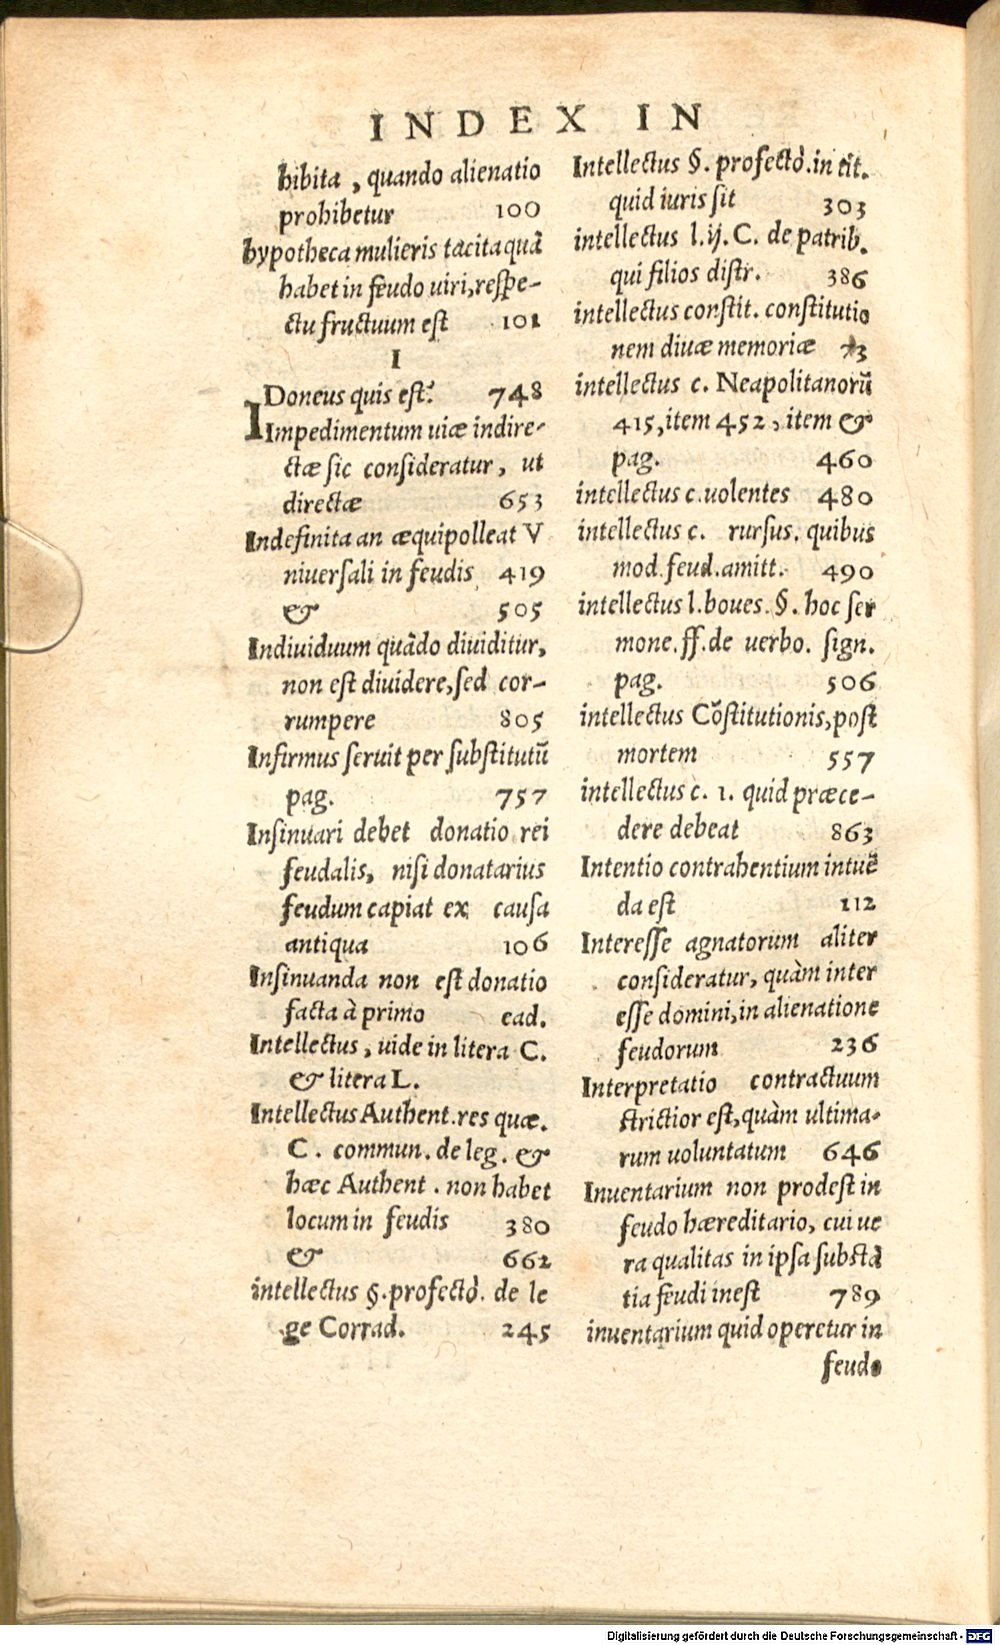 INDEX IN
hibita, quando alienatio
prohibetur 100
hypotheca mulieris tacita quā
habet in feudo uiri, respe-
ctu fructuum est 101
I
IDoneus quis est? 748
Impedimentum uiæ indire-
ctæ sic consideratur, ut
directæ 653
Indefinita an æquipolleat V
niuersali in feudis 419
& 505
Indiuiduum quādo diuiditur,
non est diuidere, sed cor-
rumpere 805
Infirmus seruit per substitutū
pag. 757
Insinuari debet donatio rei
feudalis, nisi donatarius
feudum capiat ex causa
antiqua 106
Insinuanda non est donatio
facta à primo ead.
Intellectus, uide in litera C.
& litera L.
Intellectus Authent. res quæ.
C. commun. de leg. &
hæc Authent. non habet
locum in feudis 380
& 662
intellectus §. profectò. de le
ge Corrad. 245
Intellectus §. profectò. in tit.
quid iuris sit 303
intellectus l. ij. C. de patrib.
qui filios distr. 386
intellectus constit. constitutio
nem diuæ memoriæ 73
intellectus c. Neapolitanorū
415, item 452, item &
pag. 460
intellectus c. uolentes 480
intellectus c. rursus. quibus
mod. feud. amitt. 490
intellectus l. boues. §. hoc ser
mone. ff. de uerbo. sign.
pag. 506
intellectus Cōstitutionis, post
mortem 557
intellectus c. 1. quid præce-
dere debeat 863
Intentio contrahentium intuē
da est 112
Interesse agnatorum aliter
consideratur, quàm inter
esse domini, in alienatione
feudorum 236
Interpretatio contractuum
strictior est, quàm ultima-
rum uoluntatum 646
Inuentarium non prodest in
feudo hæreditario, cui ue
ra qualitas in ipsa substā
tia feudi inest 789
inuentarium quid operetur in
feudo
Digitalisierung gefördert durch die Deutsche Forschungsgemeinschaft - DFG